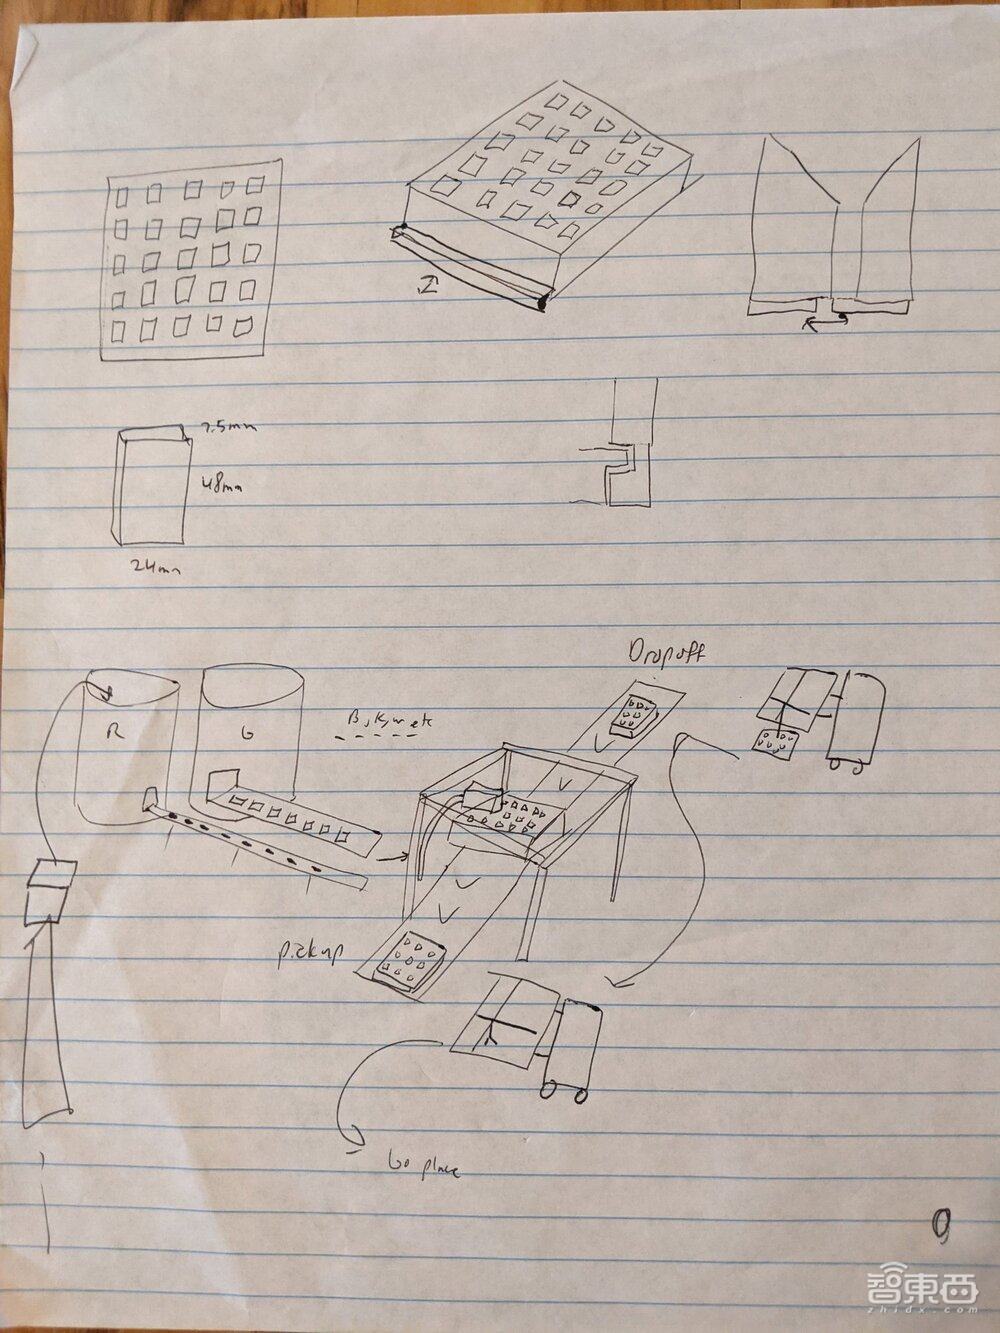 7.5mm
48mm
24mm
Dropoff
R
G
B, K, W etc
pickup
Go place
9
智東西
zhidx.com